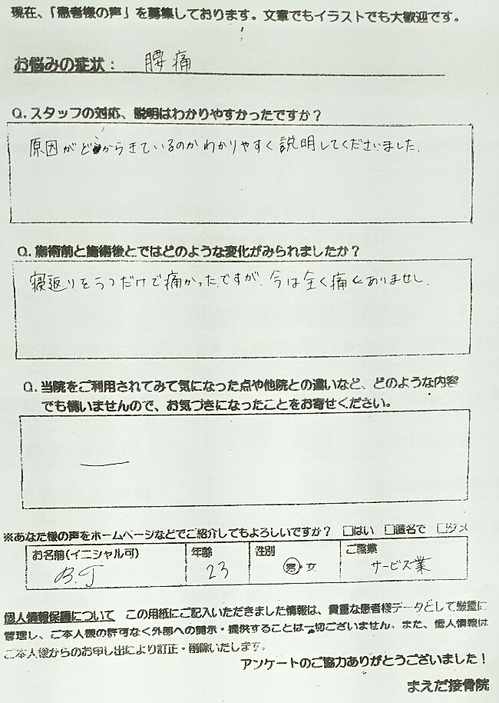 現在、「患者様の声」を募集しております。文章でもイラストでも大歓迎です。
お悩みの症状： 腰痛
Q. スタッフの対応、説明はわかりやすかったですか？
原因がどからきているのかわかりやすく説明してくださいました。
Q. 施術前と施術後とではどのような変化がみられましたか？
寝返りをうつだけで痛かったですが、今は全く痛くありません。
Q. 当院をご利用されてみて気になった点や他院との違いなど、どのような内容
でも構いませんので、お気づきになったことをお寄せください。
※あなた様の声をホームページなどでご紹介してもよろしいですか？ □はい □匿名で □ダメ
お名前(イニシャル可) 年齢 性別 ご職業
23 男・女 サービス業
個人情報保護について この用紙にご記入いただきました情報は、貴重な患者様データとして厳重に
管理し、ご本人様の許可なく外部への開示・提供することは一切ございません。また、個人情報は
ご本人様からのお申し出により訂正・削除いたします。
アンケートのご協力ありがとうございました！
まえだ接骨院